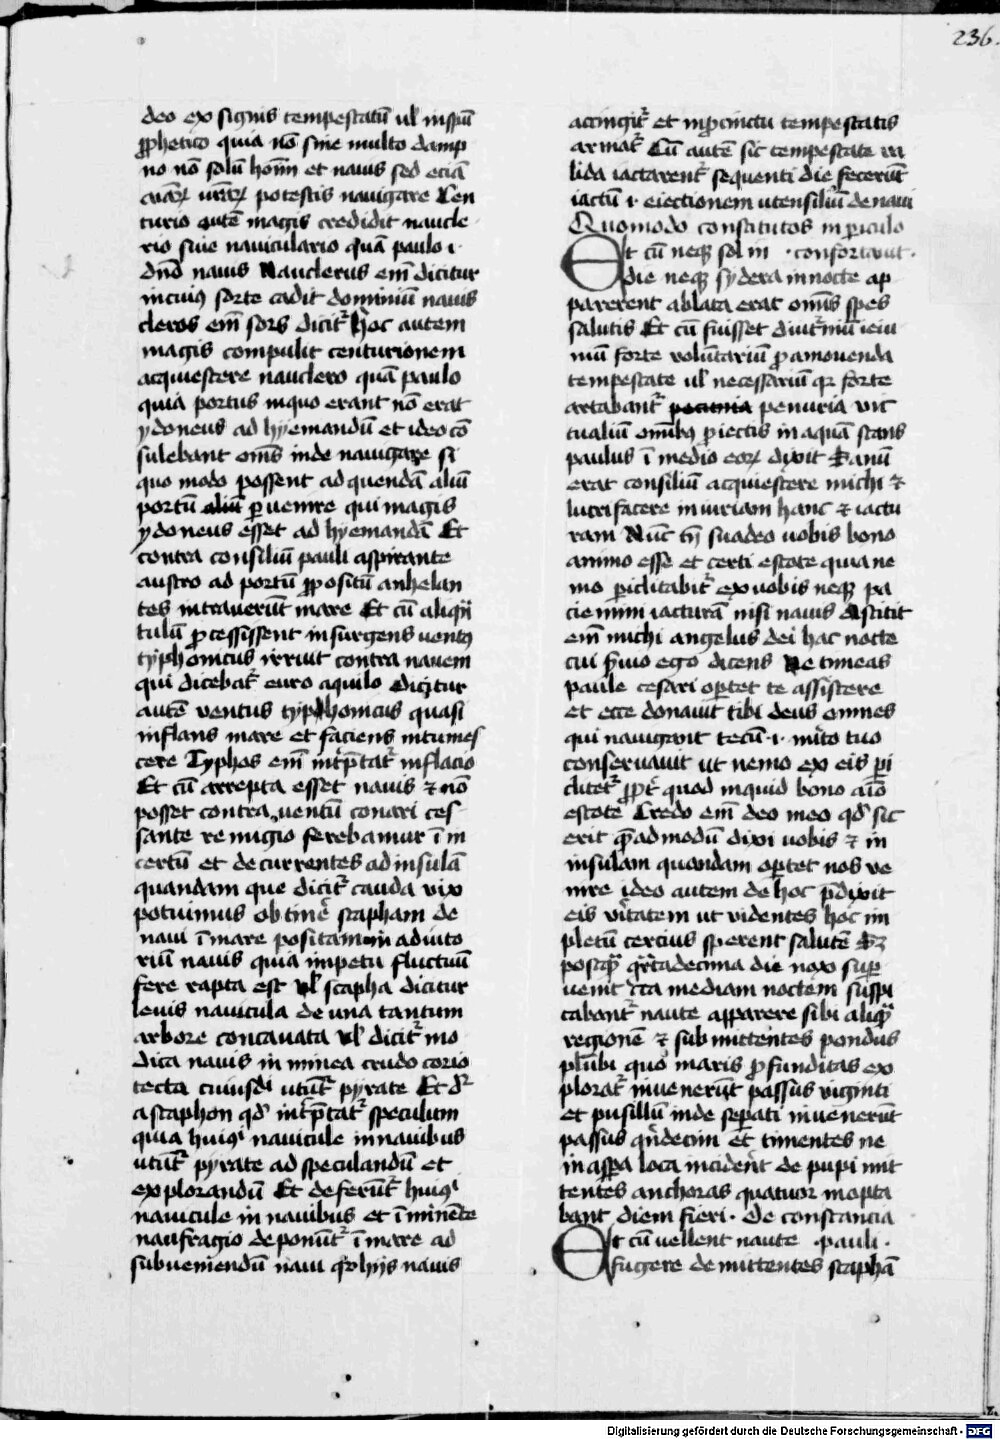 236.
deo ex signis tempestatū ul̕ in spū
ꝓphetico quia nō sine multo damp
no nō solū hoīm et nauis sed eciā
aīaꝝ vr̄aꝝ potestis nauigare Cen
turio autē magis credidit naucle
rio siue nauiculario quā paulo ·i·
dn̄o nauis Nauclerus em̄ dicitur
in cuiꝰ sorte cadit dominiū nauis
cleros em̄ sors dicit̕ Hoc autem
magis compulit centurionem
acquiescere nauclero quā paulo
quia portus in quo erant nō erat
ydoneus ad hyemandū et ideo cō
sulebant om̄s inde nauigare si
quo modo possent ad quendā aliū
portū aliū ꝑuenire qui magis
ydoneus esset ad hyemandū Et
contra consiliū pauli aspirante
austro ad portū ꝓpositū anhelan
tes intrauerūt mare Et cū aliqn̄
tulū ꝓcessissent insurgens ventꝰ
typhonicus irruit contra nauem
qui dicebat̕ euro aquilo Dicitur
autē ventus typhonicus quasi
inflans mare et faciens intumes
cere Typhos em̄ int̕p̄tat̕ inflacio
Et cū arrepta esset nauis ⁊ nō
posset contra ventū conari ces
sante remigio ferebamur ī in
certū et decurrentes ad insulā
quandam que dicit̕ cauda vix
potuimus obtinē̕ scapham de
naui ī mare positam in adiuto
riū nauis quia impetu fluctuū
fere rapta est Vl̕ scapha dicitur
leuis nauicula de una tantum
arbore concauata Vl̕ dicit̕ mo
dica nauis in minea crudo corio
tecta cuiusdi utūt̕ pyrate Et dr̄
a scaphon qd̕ int̕p̄tat̕ speculum
quia huiꝰi nauicule in nauibus
utūt̕ pyrate ad speculandū et
explorandū Et deferūt̕ huiꝰi
nauicule in nauibus et īminēte
naufragio deponūt̕ ī mare ad
subueniendū naui qd̕ hijs nauis
accingit̕ et in ꝓcinctu tempestatis
armat̕ Cū autē sic tempestate va
lida iactarent̕ sequenti die fecerūt
iactū ·i· eiectionem utensiliū de naui
Quomodo constitutos in periculo
Et cū neqꝫ sol in · confortauit ·
die neqꝫ sydera in nocte ap
parerent ablata erat om̄is spes
salutis Et cū fuisset diut̕nū ieiu
niū forte voluntariū ꝓ amouenda
tempestate ul̕ necessariū qꝛ forte
artabant̕ pecunia penuria vic
tualiū omībꝰ ꝓiectis in aquā stans
paulus ī medio eoꝝ dixit Bonū
erat consiliū acquiescere michi ⁊
lucrifacere iniuriam hanc ⁊ iactu
ram Nūc tn̄ suadeo uobis bono
animo esse et certi estote quia ne
mo ꝑiclitabit̕ ex uobis neqꝫ pa
ciemini iacturā nisi nauis Astitit
em̄ michi angelus dei hac nocte
cui ẜuio ego dicens Ne timeas
paule cesari oꝑtet te assistere
et ecce donauit tibi deus omnes
qui nauigant tecū ·i· m̄ito tuo
conseruauit ut nemo ex eis ꝑi
clitet̕ ꝓpt̕ quod inquid bono aīo
estote Credo em̄ deo meo qd̕ sic
erit quēadmodū dixi uobis ⁊ in
insulam quandam oꝑtet nos ve
nire ideo autem de hoc p̄dixit
eis v̕itatem ut videntes hoc im
pletū cercius sperent salutē Sꝫ
postqꝫ qr̄tadecima die nox suꝑ
uenit c̕ca mediam noctem suspi
cabant̕ naute apparere sibi aliqā
regionē ⁊ submittentes pondus
plūbi quo maris ꝓfunditas ex
plorat̕ inuenerūt passus viginti
et pusillū inde seꝑati inuenerūt
passus qn̄decim et timentes ne
in asꝑa loca incident̕ de puppi mit
tentes anchoras quatuor in opta
bant diem fieri · De constancia
Et cū vellent naute · pauli ·
fugere demittentes scaphā
Digitalisierung gefördert durch die Deutsche Forschungsgemeinschaft - DFG